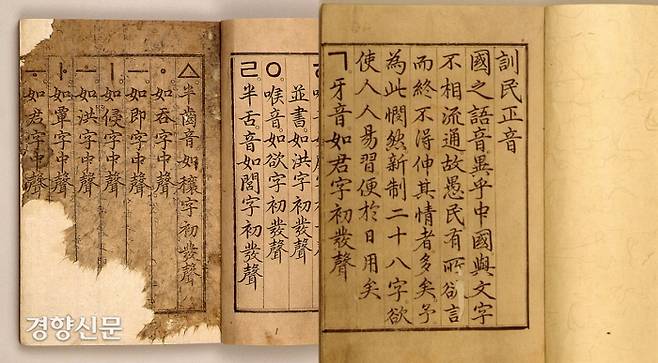 訓民正音
國之語音異乎中國與文字
不相流通故愚民有所欲言
而終不得伸其情者多矣予
為此憫然新制二十八字欲
使人人易習便於日用矣
ㄱ牙音如君字初發聲
並書如洪字初發聲
ㅇ喉音如欲字初發聲
ㄹ半舌音如閭字初發聲
ㅿ半齒音如穰字初發聲
ㆍ如呑字中聲
ㅡ如即字中聲
ㅣ如侵字中聲
ㅗ如洪字中聲
ㅏ如覃字中聲
ㅜ如君字中聲
경향신문